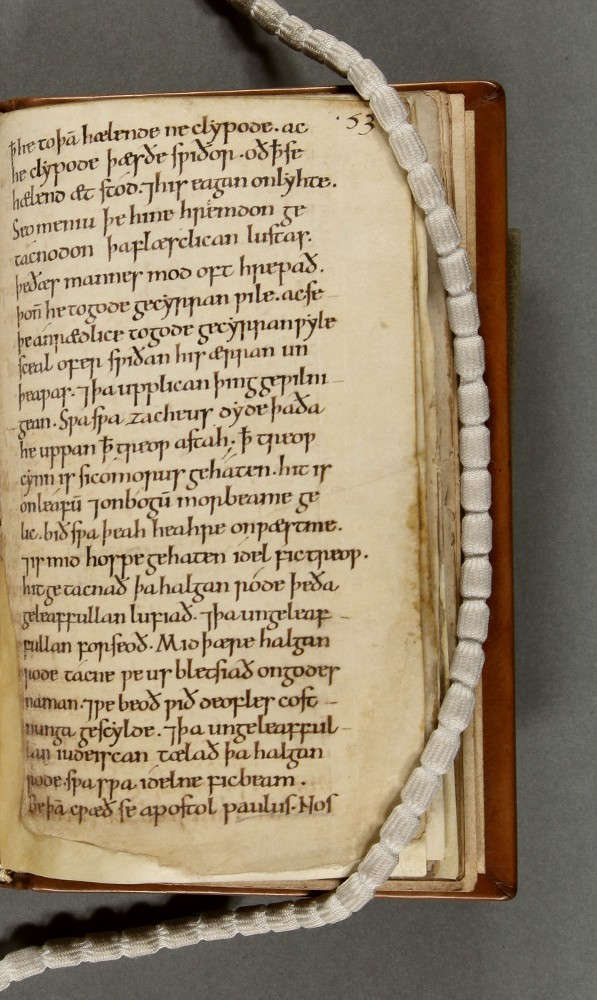 53
ꝥ he to þā hælende ne clẏpode. ac
he clẏpode þærðe swiðor. oð ꝥ se
hælend æt stod. ⁊ his eagan onlẏhte.
Seo meniu þe hine hremdon ge
tacnodon þa flæsclican lustas.
þe ðæs mannes mod oft hrepað.
þoñ he to gode gecẏrran wile. ac se
þe anrædlice to gode gecẏrran wẏle
sceal ofer swiðan his ærran un
þeawas. ⁊ þa upplican þing gewilni
gean. Swa swa zacheus dẏde þa ða
he uppan ꝥ treow astah. ꝥ treow
cẏnn is sicomorus geháten. hit is
on leafū ⁊ on bogū morbeame ge
lic. bið swa þeah heahre on wæstme.
⁊ is mid hospe gehaten idel fictreow.
hit ge tacnað þa halgan róde þe ða
geleaffullan lufiað. ⁊ þa ungeleaf
fullan forseoð. Mid þære halgan
rode tacne we us bletsiað on godes
naman. ⁊ we beoð wið deofles cost
nunga gescẏlde. ⁊ þa ungeleafful
lan iudeiscan tælað þa halgan
rode. swa swa idelne ficbeam.
Be þā cwæð se apostol paulus. Nos